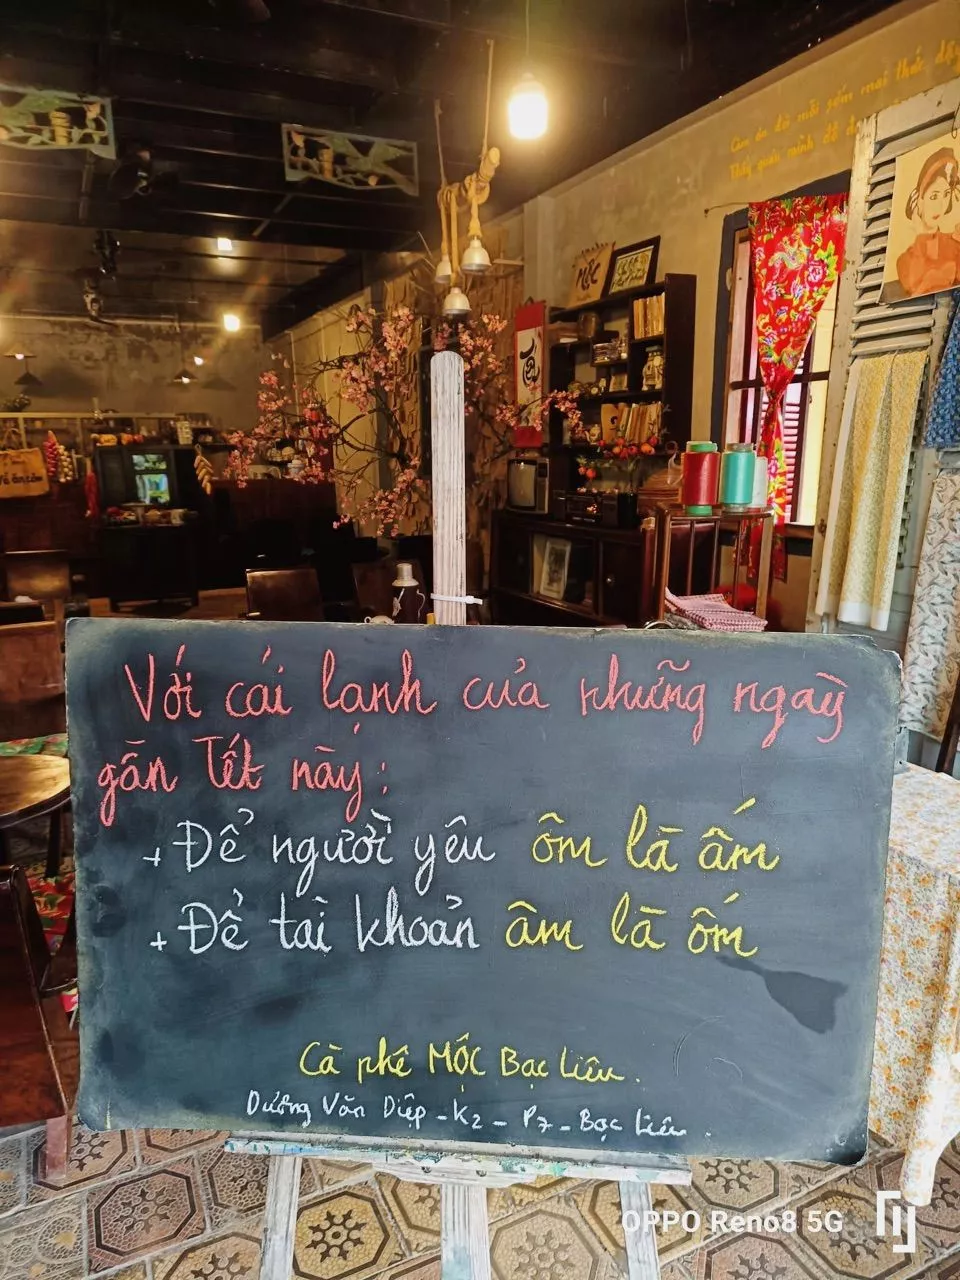 Với cái lạnh của những ngày
gần Tết này:
+ Để người yêu ôm là ấm
+ Để tài khoản âm là ốm
Cà phê MỘC Bạc Liêu.
Dương Văn Diệp - K2 - P7 - Bạc Liêu.
MỘC
OPPO Reno8 5G